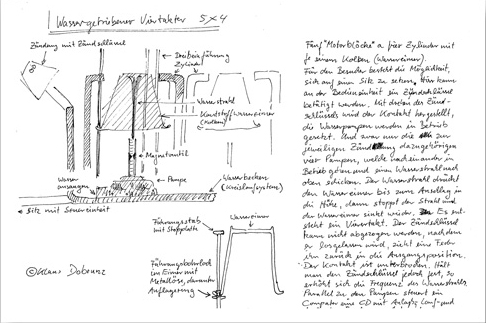 Wassergetriebener Viertakter 5x4
Zündung mit Zündschlüssel
Dreibeinführung
Zylinder
Wasserstrahl
Kunststoffwassereimer
(Kolben)
Magnetventil
Pumpe
Wasser
ansaugen
Wasserbecken
(Kreislaufsystem)
Sitz mit Steuereinheit
Führungsstab
mit Stopplatte
Wassereimer
Führungsbohrloch
im Eimer mit
Metallöse, darunter
Auflagerung
©Klaus Dobrunz
Fünf "Motorblöcke" a vier Zylinder mit
je einem Kolben (Wassereimer)
Für den Besucher besteht die Möglichkeit,
sich auf einen Sitz zu setzen, kann
an der Bedieneinheit ein Zündschlüssel
betätigt werden. Mit drehen des Zünd-
schlüssels wird der Kontakt hergestellt,
die Wasserpumpen werden in Betrieb
gesetzt. Und zwar nur die zur
jeweiligen Zündung dazugehörigen
vier Pumpen, welche nacheinander in
Betrieb gehen und einen Wasserstrahl nach
oben schicken. Der Wasserstrahl drückt
den Wassereimer bis zum Anschlag in
die Höhe, dann stoppt der Strahl und
der Wassereimer sinkt wieder. Es ent-
steht ein Viertakt. Der Zündschlüssel
kann nicht abgezogen werden, nachdem
er losgelassen wird, zieht eine Feder
ihn zurück in die Ausgangsposition.
Der Kontakt ist unterbrochen. Hält
man den Zündschlüssel jedoch fest, so
erhöht sich die Frequenz des Wasserstrahls.
Parallel zu den Pumpen steuert ein
Computer eine CD mit